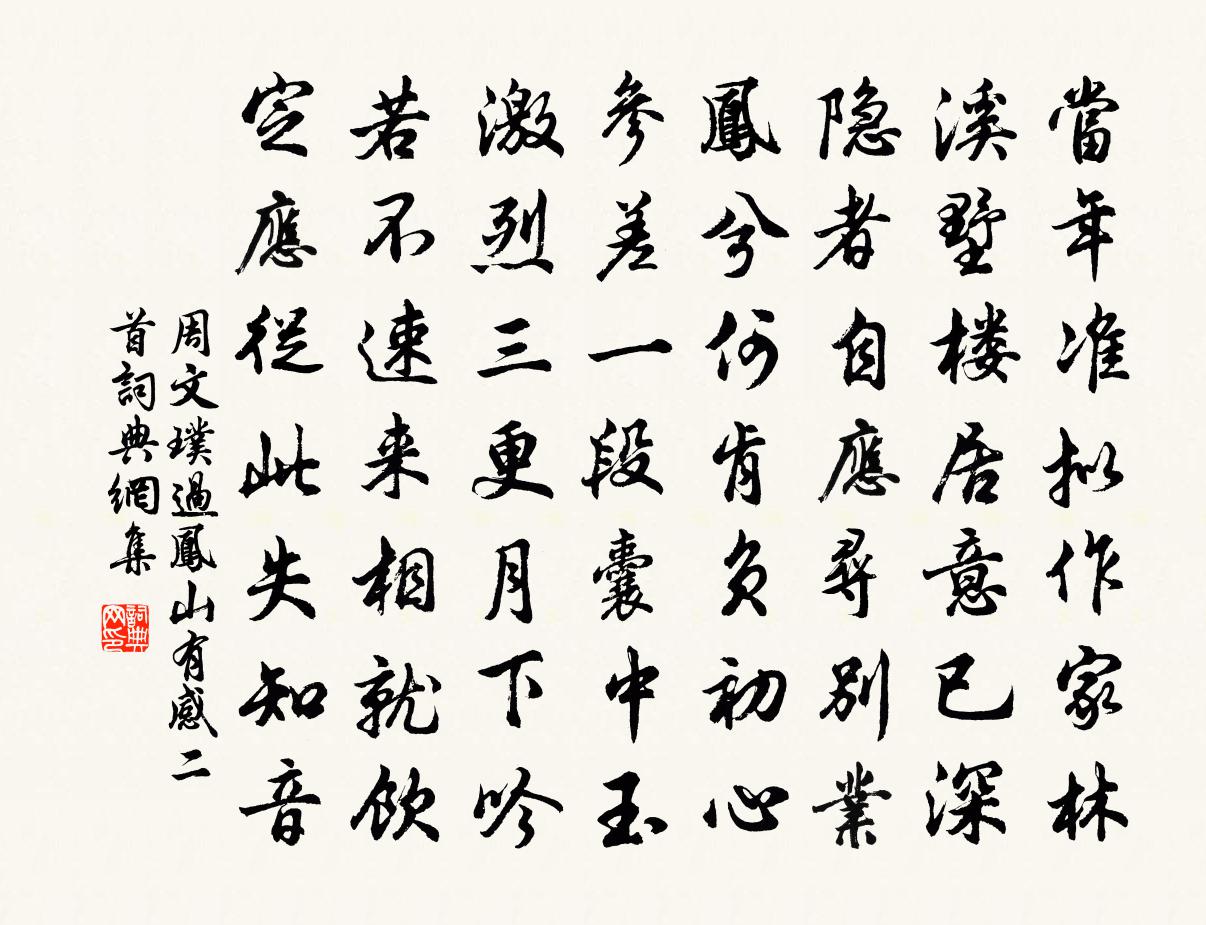 當年准拟作家林
溪墅楼居意已深
隐者自應尋别業
鳳兮何肯负初心
參差一段囊中玉
激烈三更月下吟
若不速来相就飲
定應從此失知音
周文璞過鳳山有感二
首詞典網集
詞典网印